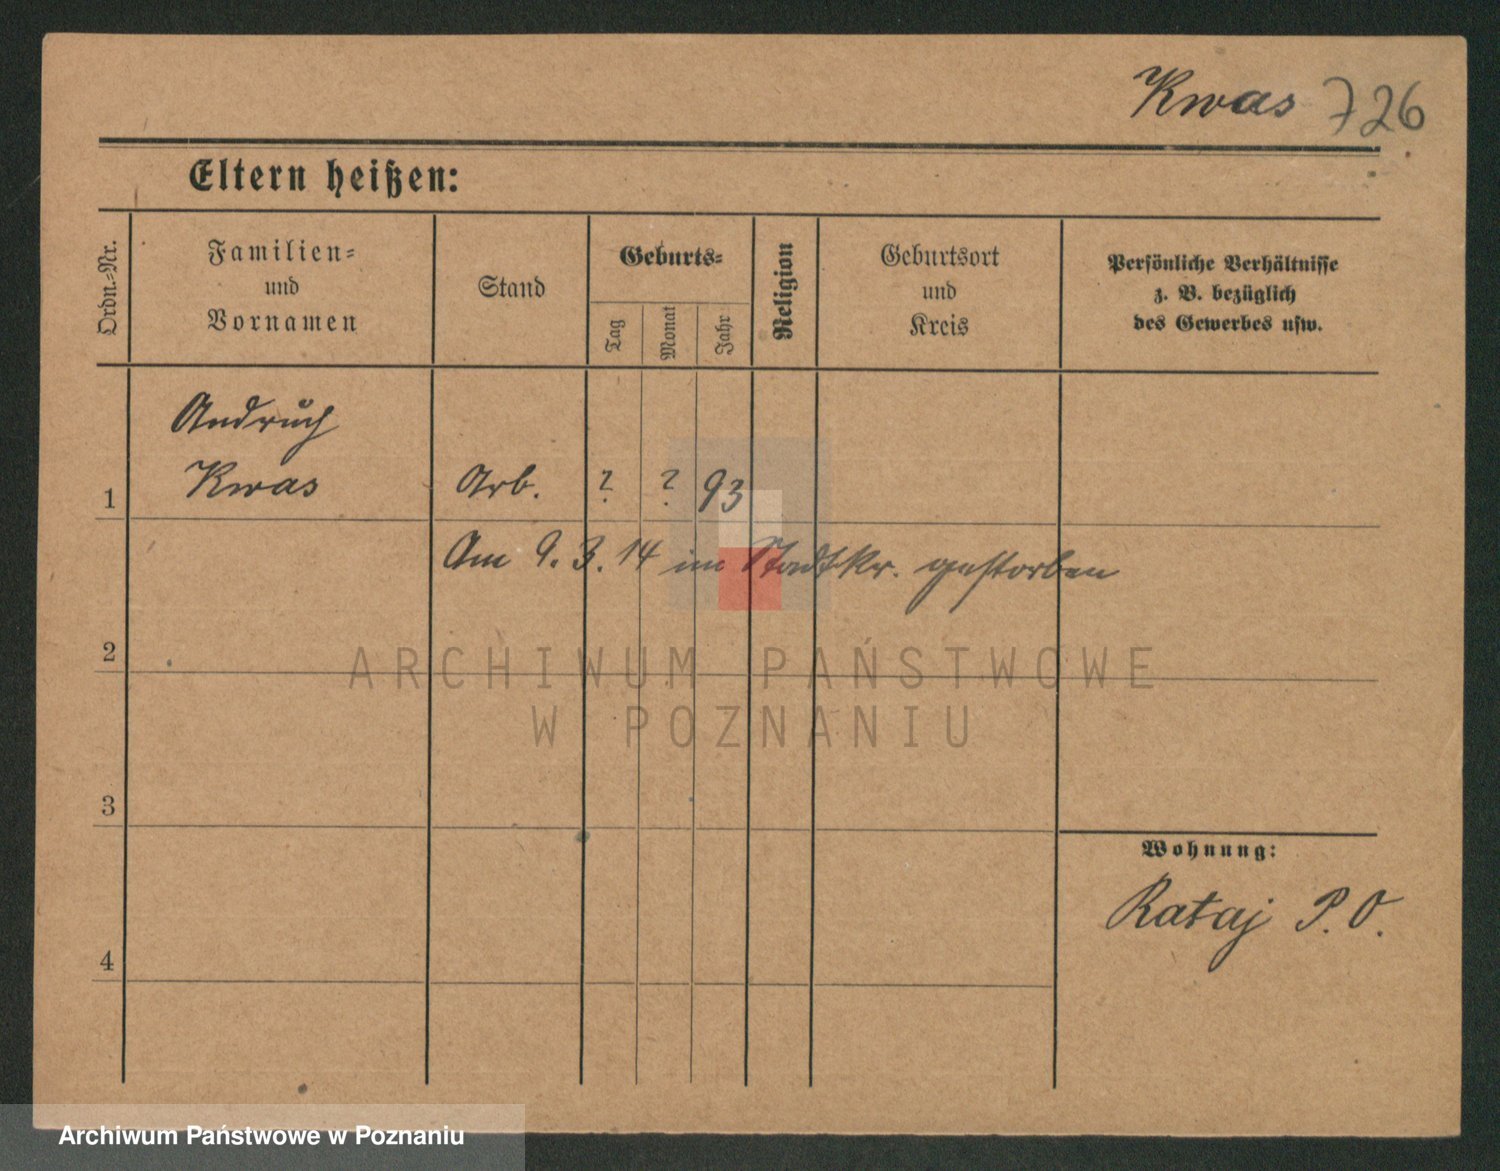 Kwas 726
Eltern heißen:
Ordn.-Nr.
Familien-
und
Vornamen
Stand
Geburts-
Tag
Monat
Jahr
Religion
Geburtsort
und
Kreis
Persönliche Verhältnisse
z. B. bezüglich
des Gewerbes usw.
Andruch
1 Kwas Arb. ? ? 93
Am 9. 3. 14 im Stadtkr. gestorben
2
ARCHIWUM PAŃSTWOWE
W POZNANIU
3
Wohnung:
Rataj P. O.
4
Archiwum Państwowe w Poznaniu